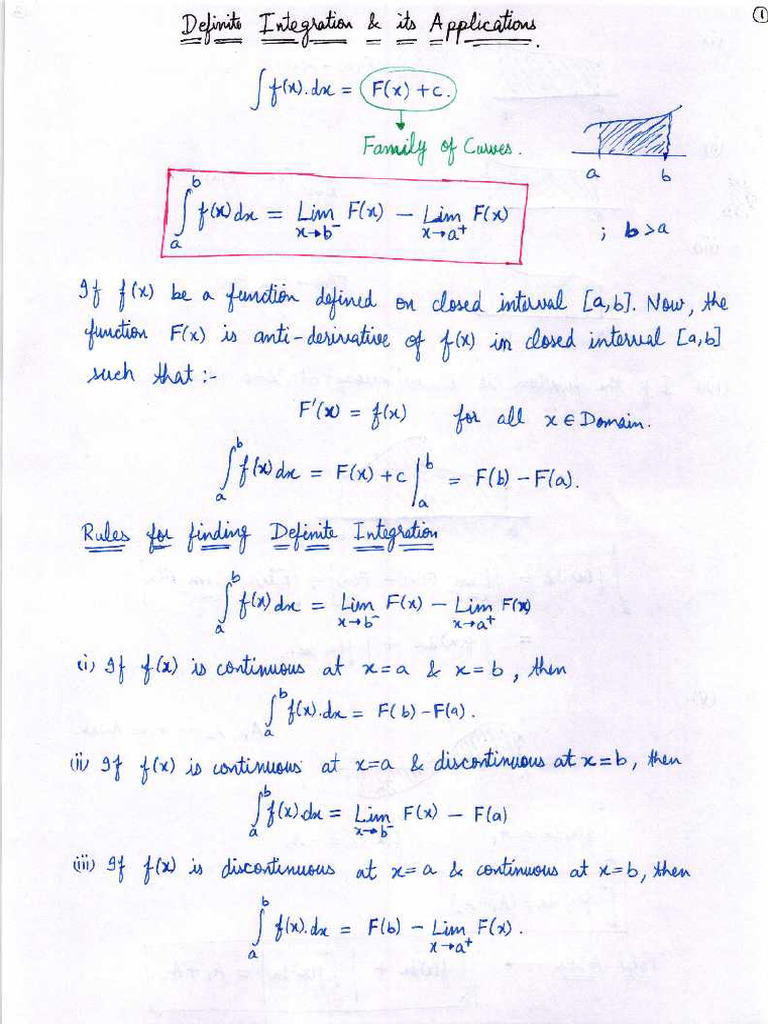 Definite Integration & its Applications.
1
∫ f(x).dx = F(x) + c.
Family of Curves.
a b
∫ₐᵇ f(x) dx = Lim x→b⁻ F(x) − Lim x→a⁺ F(x)
; b > a
If f(x) be a function defined on closed interval [a,b]. Now, the
function F(x) is anti-derivative of f(x) in closed interval [a,b]
such that :-
F'(x) = f(x) for all x ∈ Domain.
∫ₐᵇ f(x) dx = F(x) + c |ₐᵇ = F(b) − F(a).
Rules for finding Definite Integration
∫ₐᵇ f(x) dx = Lim x→b⁻ F(x) − Lim x→a⁺ F(x)
(i) If f(x) is continuous at x = a & x = b, then
∫ₐᵇ f(x).dx = F(b) − F(a).
(ii) If f(x) is continuous at x=a & discontinuous at x=b, then
∫ₐᵇ f(x).dx = Lim x→b⁻ F(x) − F(a)
(iii) If f(x) is discontinuous at x=a & continuous at x=b, then
∫ₐᵇ f(x).dx = F(b) − Lim x→a⁺ F(x).